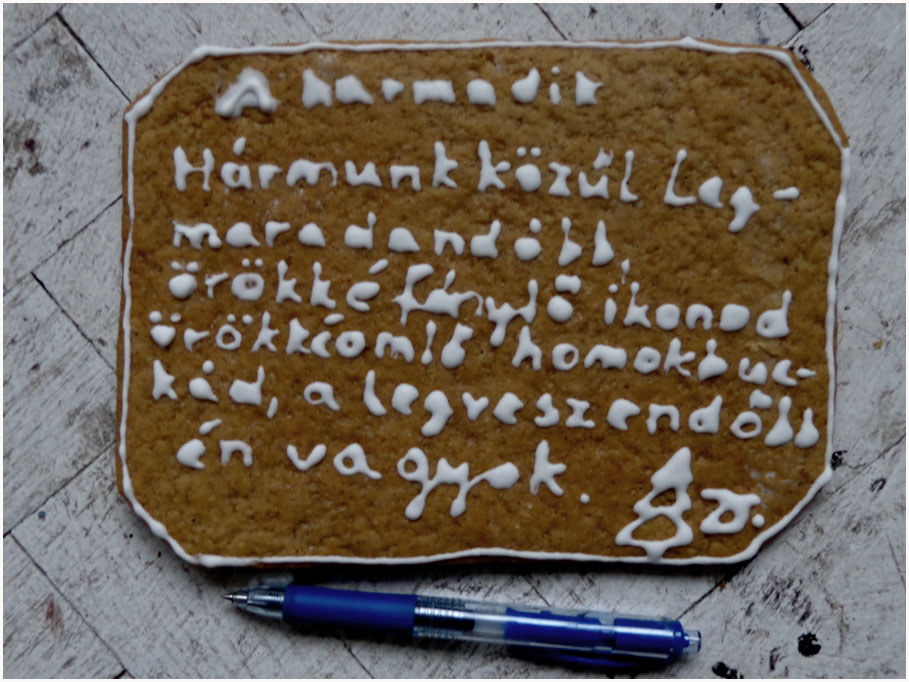 A harmadik
Hármunk közül leg-
maradandóbb,
örökké fénylő ikonod
örökkéomló homokbuc-
kád, a legveszendőbb
én vagyok.